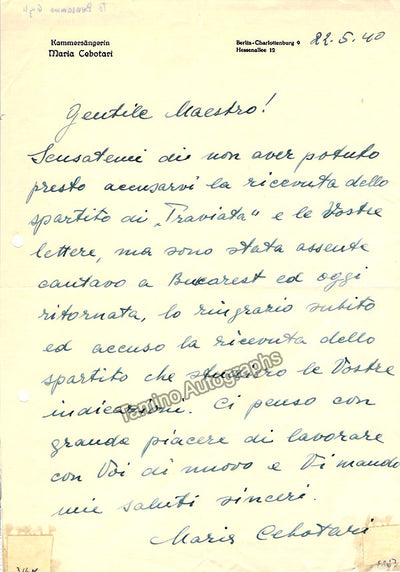 Kammersängerin
Maria Cebotari
Berlin-Charlottenburg 9
Hessenallee 12
22-5-40
Gentile Maestro!
Scusatemi di non aver potuto
presto accusarvi la ricevuta dello
spartito di „Traviata" e le Vostre
lettere, ma sono stata assente
cantavo a Bucarest ed oggi
ritornata, lo ringrazio subito
ed accuso la ricevuta dello
spartito che studiero le Vostre
indicazioni. Ci penso con
grande piacere di lavorare
con Voi di nuovo e Vi mando
miei saluti sinceri.
Maria Cebotari
Tamino Autographs